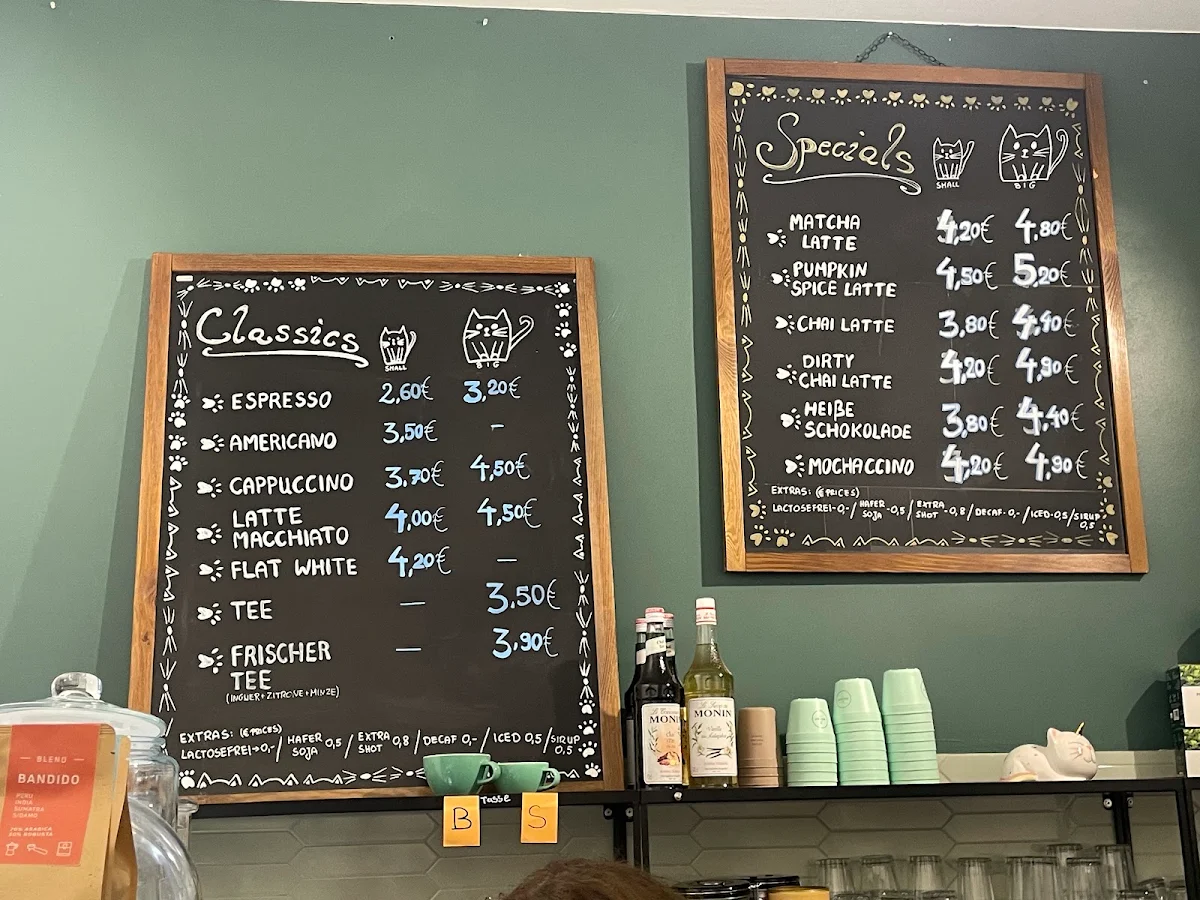 Classics
SMALL
BIG
ESPRESSO 2,60€ 3,20€
AMERICANO 3,50€ -
CAPPUCCINO 3,70€ 4,50€
LATTE
MACCHIATO 4,00€ 4,50€
FLAT WHITE 4,20€ —
TEE — 3,50€
FRISCHER
TEE — 3,90€
(INGWER+ZITRONE+MINZE)
EXTRAS: (€PRICES)
LACTOSEFREI→0,-/ HAFER SOJA 0,5 / EXTRA SHOT 0,8 / DECAF 0,- / ICED 0,5 / SIRUP 0,5
Specials
SMALL
BIG
MATCHA
LATTE 4,20€ 4,80€
PUMPKIN
SPICE LATTE 4,50€ 5,20€
CHAI LATTE 3,80€ 4,40€
DIRTY
CHAI LATTE 4,20€ 4,90€
HEIßE
SCHOKOLADE 3,80€ 4,40€
MOCHACCINO 4,20€ 4,90€
EXTRAS: (€PRICES)
LACTOSEFREI-0,-/ HAFER SOJA -0,5 / EXTRA SHOT -0,8 / DECAF-0,- / ICED-0,5 / SIRUP 0,5
MONIN
MONIN
Tasse
B
S
BLEND
BANDIDO
PERU
INDIA
SUMATRA
SIDAMO